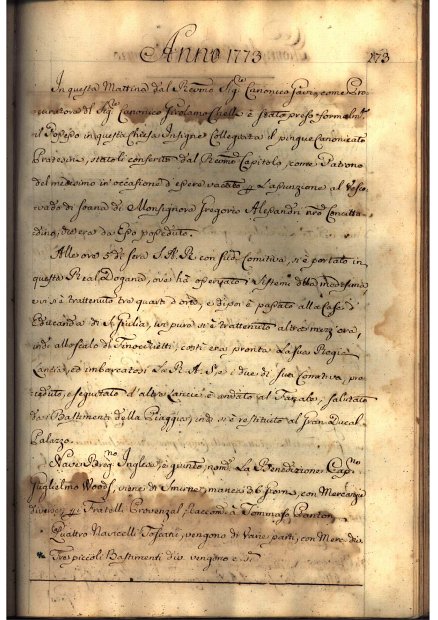 Anno 1773
173
In questa Mattina dal Re͞c͞mo Sig.r Canonico Gavi, come Pro-
curatore del Sig.r Canonico Girolamo Chelli è stato preso formalm.te
il Possesso in questa Chiesa Insigne Collegiata il pingue Canonicato
statoli conferito dal Capitolo, come Patrono
del medesimo in occasione d'essere vacato l'assunzione al Vesco-
vado di Soana di Monsignore Gregorio Alessandri nro Concitta-
dino, che era da Esso posseduto.
Alle ore 5 di sera S. A. R. con sua Comitiva, si è portato in
questa Real Dogana, ove hà osservato i Sistemi della medesima
e vi si è trattenuto tre quarti d'ora, e di poi è passato alla Casa d'
Educande di S. Giulia, ove pure si è trattenuto altra mezz'ora,
indi allo scalo di costì era pronta La sua Regia
Lancia, ed imbarcatosi La R. A. S. e i due di sua Comitiva, pre-
ceduto, e seguitato d'altre Lancie è andato al Fanale, salutato
da i Bastimenti della Piaggia, indi si è restituito al Gran Ducal
Palazzo.
Nave Inglese, è giunto, nom.ta La Benedizione Cap.no
Guglielmo Woods, viene di Smirne, manca 36 giorni, con Mercanzie
diverse, Fratelli Provenzal, Raccom. a Tommaso
Quattro Navicelli Toscani, vengono di Varie parti, con Merc. div.
Tre piccoli Bastimenti div. vengono